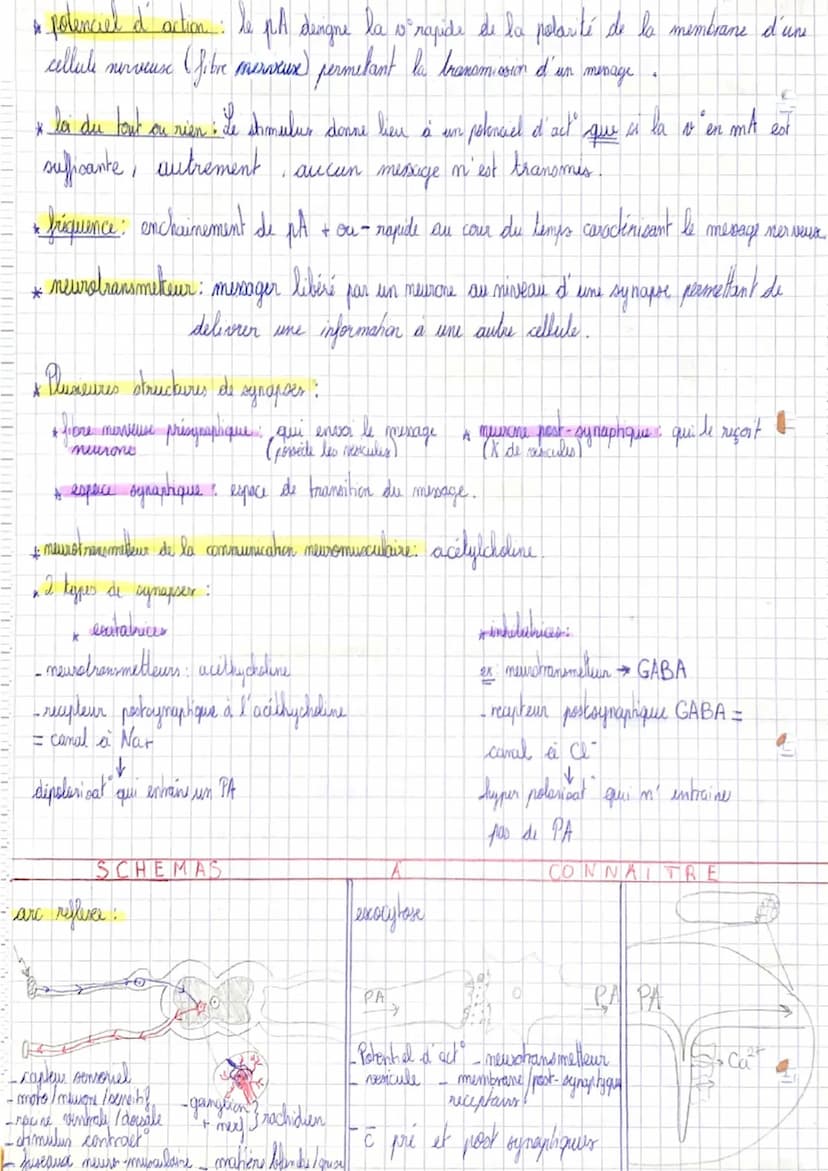 * potenciel d'action : le pA désigne la v° rapide de la polarité de la membrane d'une
cellule nerveuse (fibre nerveuse) permetant la transmission d'un message.
* loi du tout ou rien : Le stimulus donne lieu à un potenciel d'act° que si la v° en mA est
suffisante, autrement, aucun message n'est transmis.
* fréquence : enchainement de pA + ou - rapide au cour du temps caractérisant le message nerveux
* neurotransmetteur : messager libéré par un neurone au niveau d'une synapse permettant de
délivrer une information à une autre cellule.
* Plusieures structures de synapses :
* fibre nerveuse présynaptique : qui envoi le message * neurone post-synaptique : qui le reçoit
neurone (possède les vésicules) (X de vésicules)
* espace synaptique : espace de transition du message.
* neurotransmetteur de la communication neuromusculaire : acétylcholine.
* 2 types de synapses :
* exitatrices * inhibitrices :
- neurotransmetteurs : acéthycholine ex : neurotransmetteur → GABA
- recepteur postsynaptique à l'acéthycholine - recepteur postsynaptique GABA =
= canal à Na+ canal à Cl-
↓ ↓
dépolarisat° qui entraine un PA hyper polarisat° qui n'entraine
pas de PA
SCHEMAS A CONNAITRE
arc reflexe : exocytose
PA PA PA
Ca2+
- capteur sensoriel - Potentiel d'act° - neurotransmetteur
- moto/neurone/sensitif - vésicule - membrane/post-synaptique
- racine ventrale/dorsale - ganglion } rachidien recepteurs
+ nerf
- stimulus contract° - c pré et post synaptiques
- fuseaux neuro-musculaire - matière blanche/grise